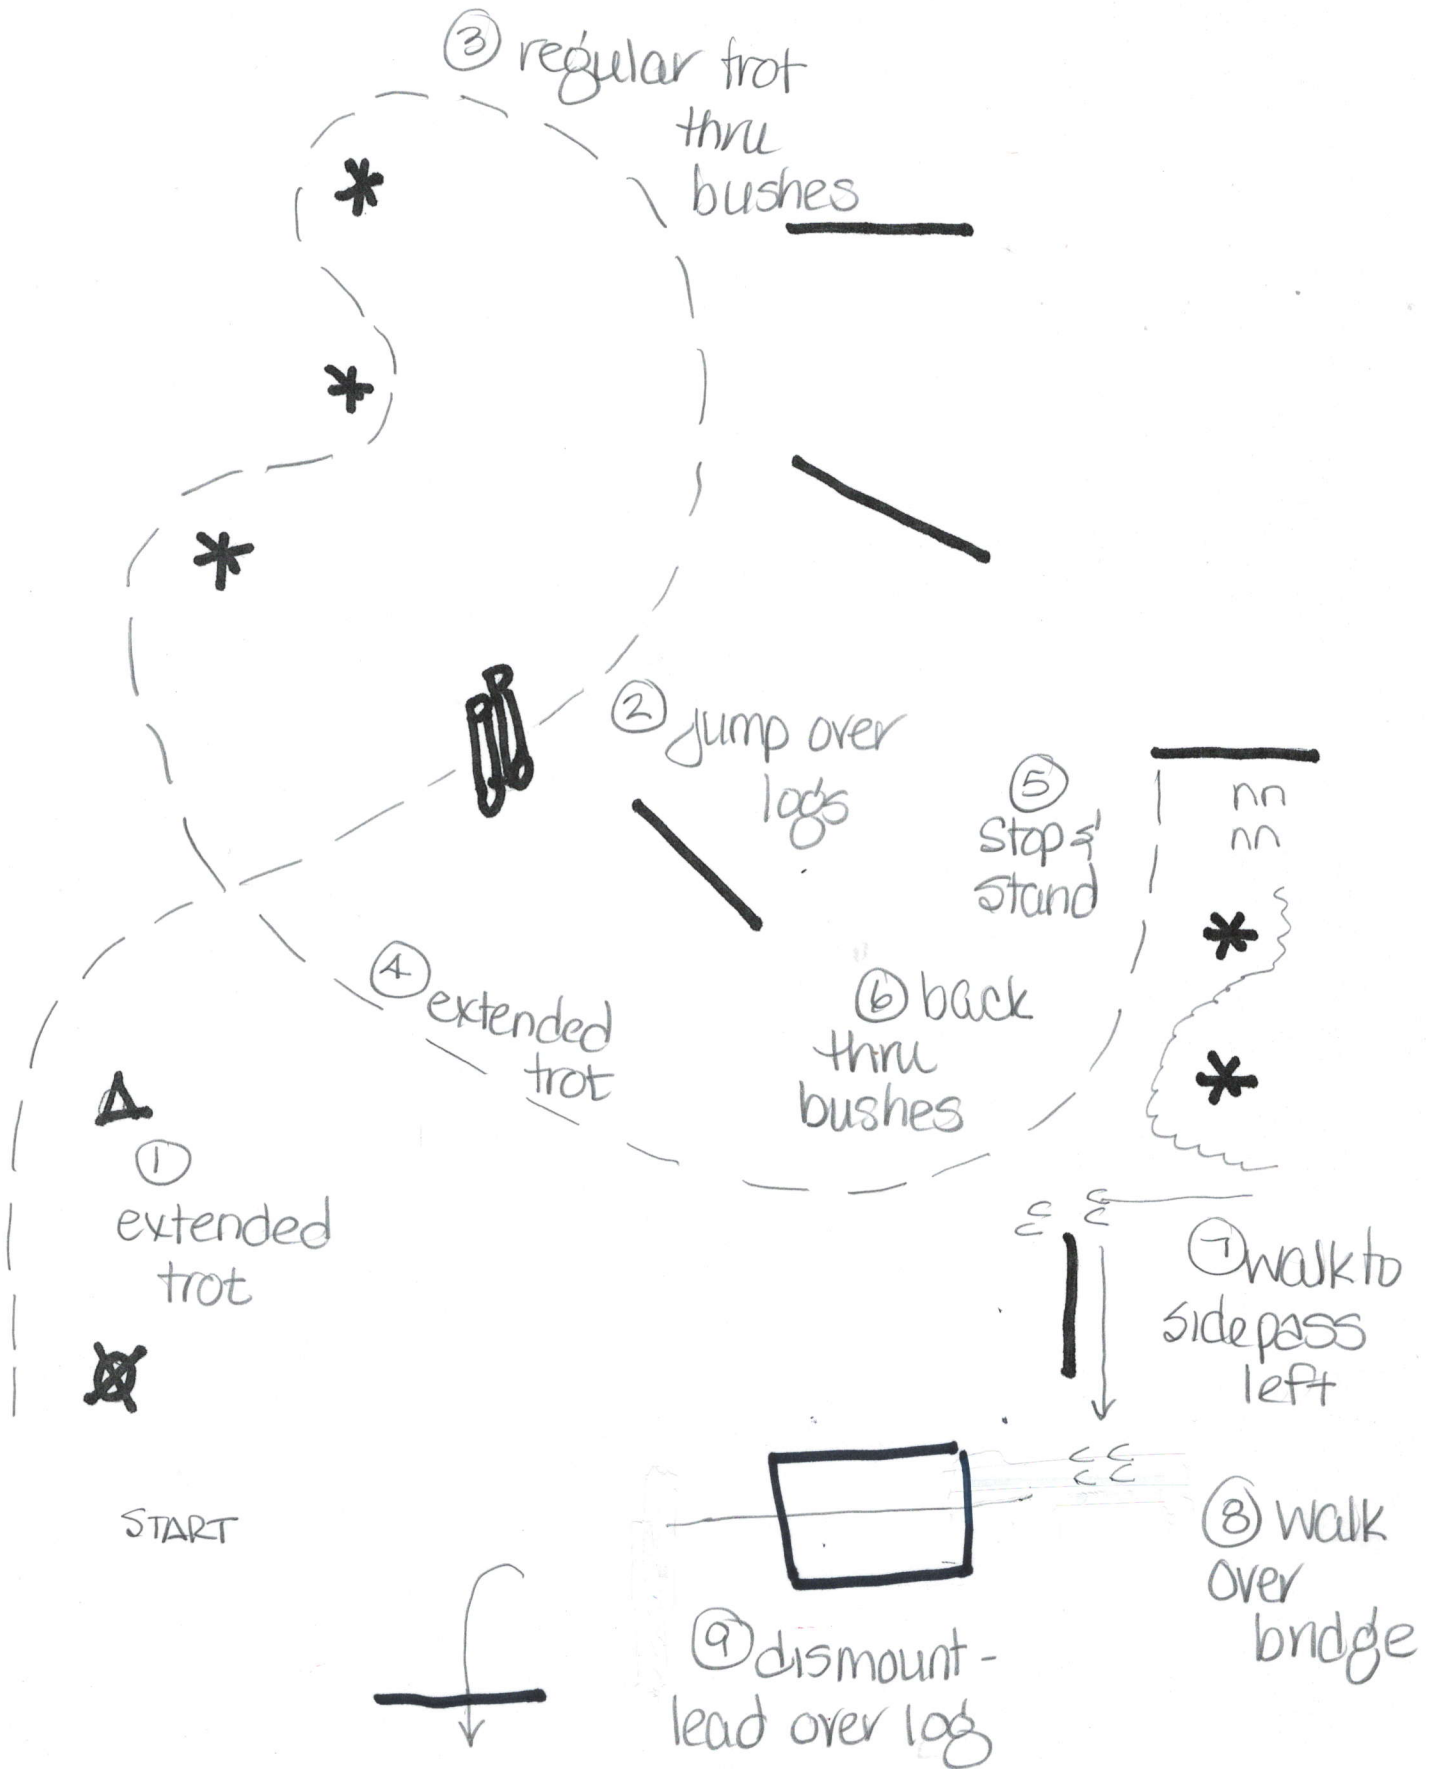 ③ regular trot
thru
bushes
② jump over
logs
⑤
Stop &
stand
④ extended
trot
⑥ back
thru
bushes
①
extended
trot
⑦ walk to
sidepass
left
START
⑧ walk
over
bridge
⑨ dismount -
lead over log